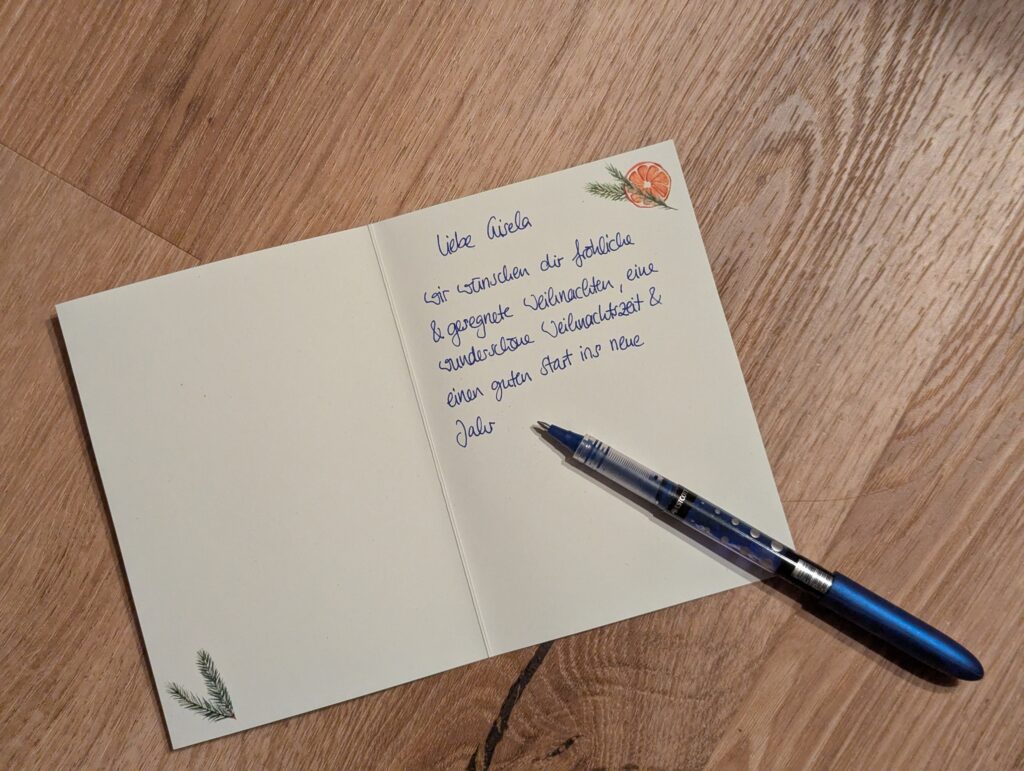 Liebe Gisela
wir wünschen dir fröhliche
& gesegnete Weihnachten, eine
wunderschöne Weihnachtszeit &
einen guten Start ins neue
Jahr